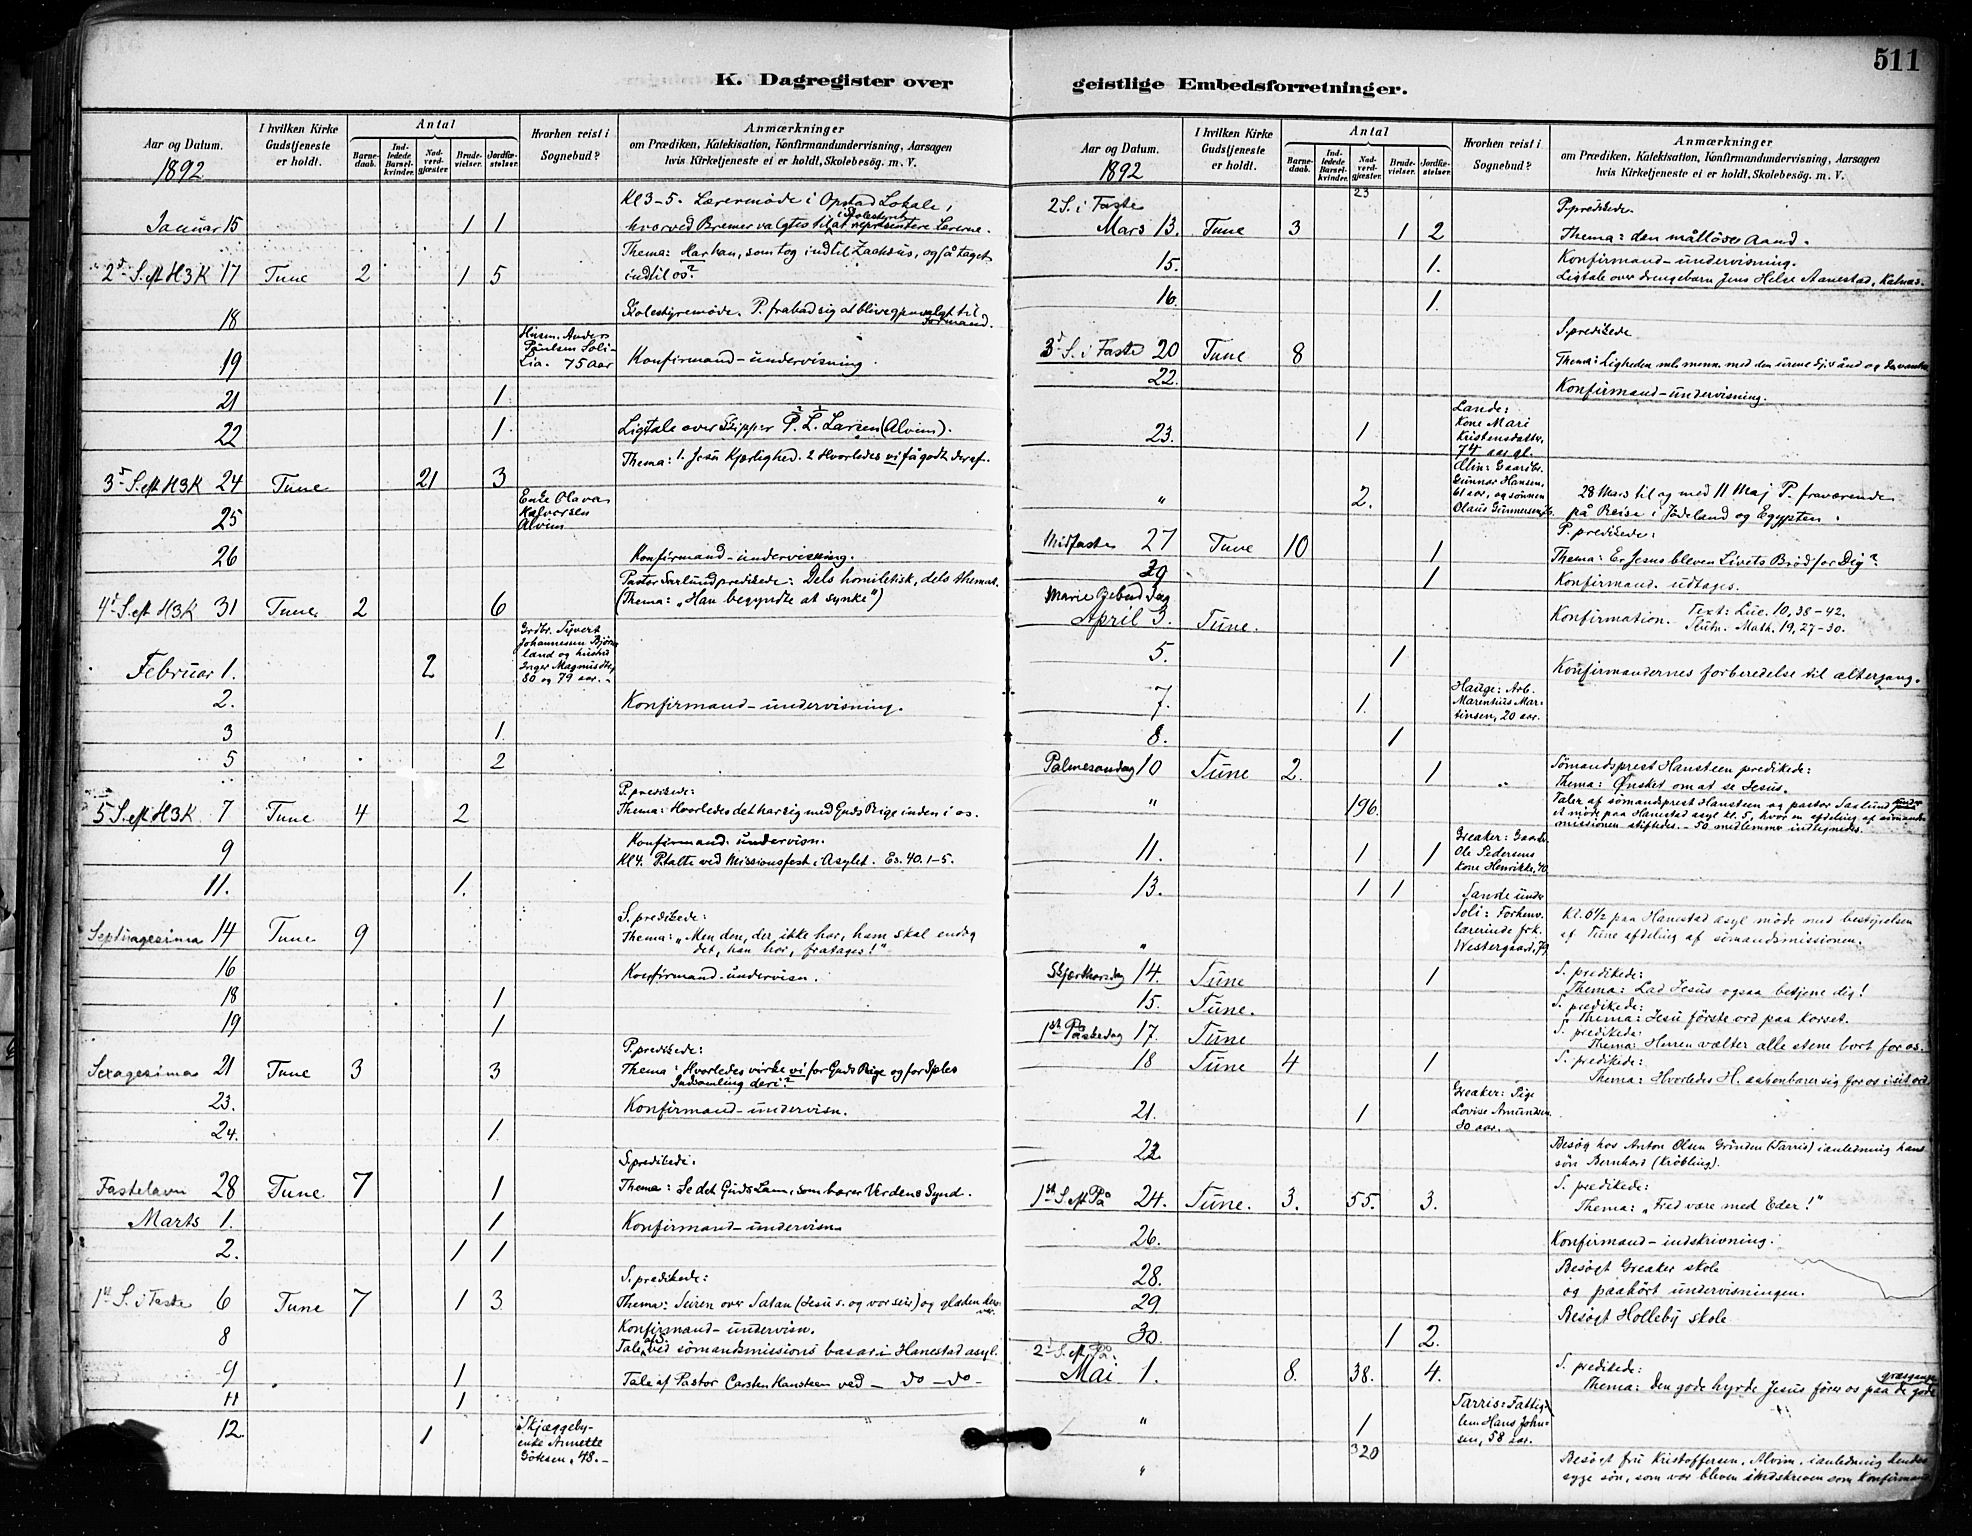 511
K. Dagregister over
geistlige Embedsforretninger.
Aar og Datum.
1892
I hvilken Kirke Gudstjeneste er holdt.
Antal
Barne-daab.
Ind-ledede Barsel-kvinder.
Nad-verd-gjæster
Brude-vielser.
Jordfæ-stelser.
Hvorhen reist i Sognebud?
Anmærkninger
om Prædiken, Katekisation, Konfirmandundervisning, Aarsagen
hvis Kirketjeneste ei er holdt, Skolebesøg. m. V.
Kl 3-5. Lærermøde i Opstad Lokale,
Januar 15 1 1 hvorved Bremer valgtes til i Skolestyret at repræsentere Lærerne.
Thema: Har han, som tog ind til Zachæus, også taget
2d S. eft H3K 17 Tune 2 1 5 ind til os?
18 Skolestyremøde. P. frabad sig at blive gjenvalgt til Formand.
19 Husm. Anders Paulsen Soli-Lia. 75 aar Konfirmand-undervisning.
21 1.
22 1. Ligtale over Skipper P. L. Larsen (Alvim).
Thema: 1. Jesu Kjærlighed. 2 Hvorledes vi få godt deraf.
3d S. eft H3K 24 Tune 21 3
25 Enke Olava Halvorsen Alvim
26 Konfirmand-undervisning.
Pastor Sarlund predikede: Dels homiletisk, dels themat.
4d S. eft H3K 31 Tune 2 6 (Thema: "Han begyndte at synke")
Februar 1. 2 Grdbr. Sivert Johannesen Bjørnland og hustru Inger Magnusdtr, 80 og 79 aar.-
2. Konfirmand-undervisning.
3 1.
5 2
P. predikede:
5 S. eft H3K 7 Tune 4 2 Thema: Hvorledes det har sig med Guds Rige inden i os.
9 Konfirmand. undervisn.
Kl 4. P. talte ved Missionsfest i Asylet. Es. 40. 1-5.
11. 1.
S. predikede:
Septuagesima 14 Tune 9 Thema: "Men den, der ikke har, ham skal endog
det, han har, fratages!"
16 Konfirmand-undervisn.
18 1
19 1
P. predikede:
Sexagesima 21 Tune 3 3 Thema: Hvorledes virke vi for Guds Rige og for
Indsamling deri?
23. Konfirmand-undervisn.
24. 1.
S. predikede:
Fastelavn 28 Tune 7 1 Thema: Se det Guds Lam, som bærer Verdens Synd.
Marts 1. 1 Konfirmand-undervisn
2. 1 1
S. predikede:
1st S. i Faste 6 Tune 7 1 3 Thema: Seiren over Satan (Jesu s. og vor seir) og glæden
8 Konfirmand-undervisn.
Tale ved sömandsmissions basar i Hanestad asyl.
9 1 Tale af Pastor Carsten Hansteen ved - do - do -
11 1
12 1 i Skjæggeby-enke Annette 48.-
Aar og Datum.
1892
I hvilken Kirke Gudstjeneste er holdt.
Antal
Barne-daab.
Ind-ledede Barsel-kvinder.
Nad-verd-gjæster.
Brude-vielser.
Jordfæ-stelser.
Hvorhen reist i Sognebud?
Anmærkninger
om Prædiken, Katekisation, Konfirmandundervisning, Aarsagen
hvis Kirketjeneste ei er holdt, Skolebesøg. m. V.
23
2 S. i Faste P. predikede.
Mars 13. Tune 3 1 2 Thema: den målløse Aand.
15. 1. Konfirmand-undervisning.
Ligtale over drengebarn Jens Helge Aanestad, Kalnæs.
16. 1.
S. predikede
3d S. i Faste 20 Tune 8 Thema: Ligheden mlm menn. med den urene Dj.s ånd og
22. Konfirmand-undervisning.
23. 1 Lande: Kone Mari Kristensdatter, 74 aar gl.
" 2. Alvim: Gaardbr. Gunnar Hansen, 61 aar, og sönnen Olaus Gunnersen, 28 Mars til og med 11 Maj P. fraværende
på Reise i Jødeland og Egypten.
P. predikede:
Midfaste 27 Tune 10 1 Thema: Er Jesus bleven Livets Brød for Dig?
1 Konfirmand. udtages.
Marie Bebud. Dag
April 3. Tune. Konfirmation. Text: Luc. 10, 38-42.
Slutn. Math. 19, 27-30.
5. 1 Konfirmandernes forberedelse til altergang.
7. 1. Hauge: Arb. Marentius Martinsen, 20 aar.
8. 1
Palmesøndag 10 Tune 2. 1 Sömandsprest Hansteen predikede:
Thema: Ønsket om at se Jesus.
" 196. Taler af sömandsprest Hansteen og pastor Sarlund under
et möde paa Hanestad asyl kl. 5, hvor en afdeling af sömands-
missionen stiftedes. - 50 medlemmer indtegnedes.
11. 1 1 Greaker: Gaardbr. Ole Pedersens kone Henrikke, 40.
13. 1 1 Sande under
" Soli: Forhenv. lærerinde frk. Westergaard, 79. Kl. 6½ paa Hanestad asyl möde med bestyrelsen
af Tune afdeling af sömandsmissionen.
Skjærthorsdag 14. Tune 1 S. predikede:
Thema: Lad Jesus ogsaa betjene dig!
15. Tune. S. predikede:
Thema: Jesu förste ord paa korset.
1st Paaskedag 17. Tune S. predikede:
Thema: Herren vælter alle stene bort for os.
18 Tune 4 1 S. predikede:
Thema: Hvorledes H. aabenbarer sig for os i sit ord
21. 1 Greaker: Pige Lovise Amundsen 30 aar.
Besög hos Anton Olsen Grinden (Tarris) i anledning hans
sön Bernhard (Kröbling).
1st S. eft På 24. Tune. 3. 55. 3. S. predikede:
Thema: "Fred være med Eder!"
26. Konfirmand-indskrivning.
28. Besögt Greaker skole
og paahört undervisningen.
29 Besögt Holleby skole
30. 1 2.
2d S. eft På.
Mai 1. 8. 38. 4. S. predikede:
Thema: Den gode hyrde Jesus förer os paa de gode græsgange
" 1 Tarris: Fattiglem Hans Johnsen, 58 aar.
320
" Besögt fru Kristoffersen, Alvim, i anledning hendes
syge sön, som var bleven indskreven som konfirmand